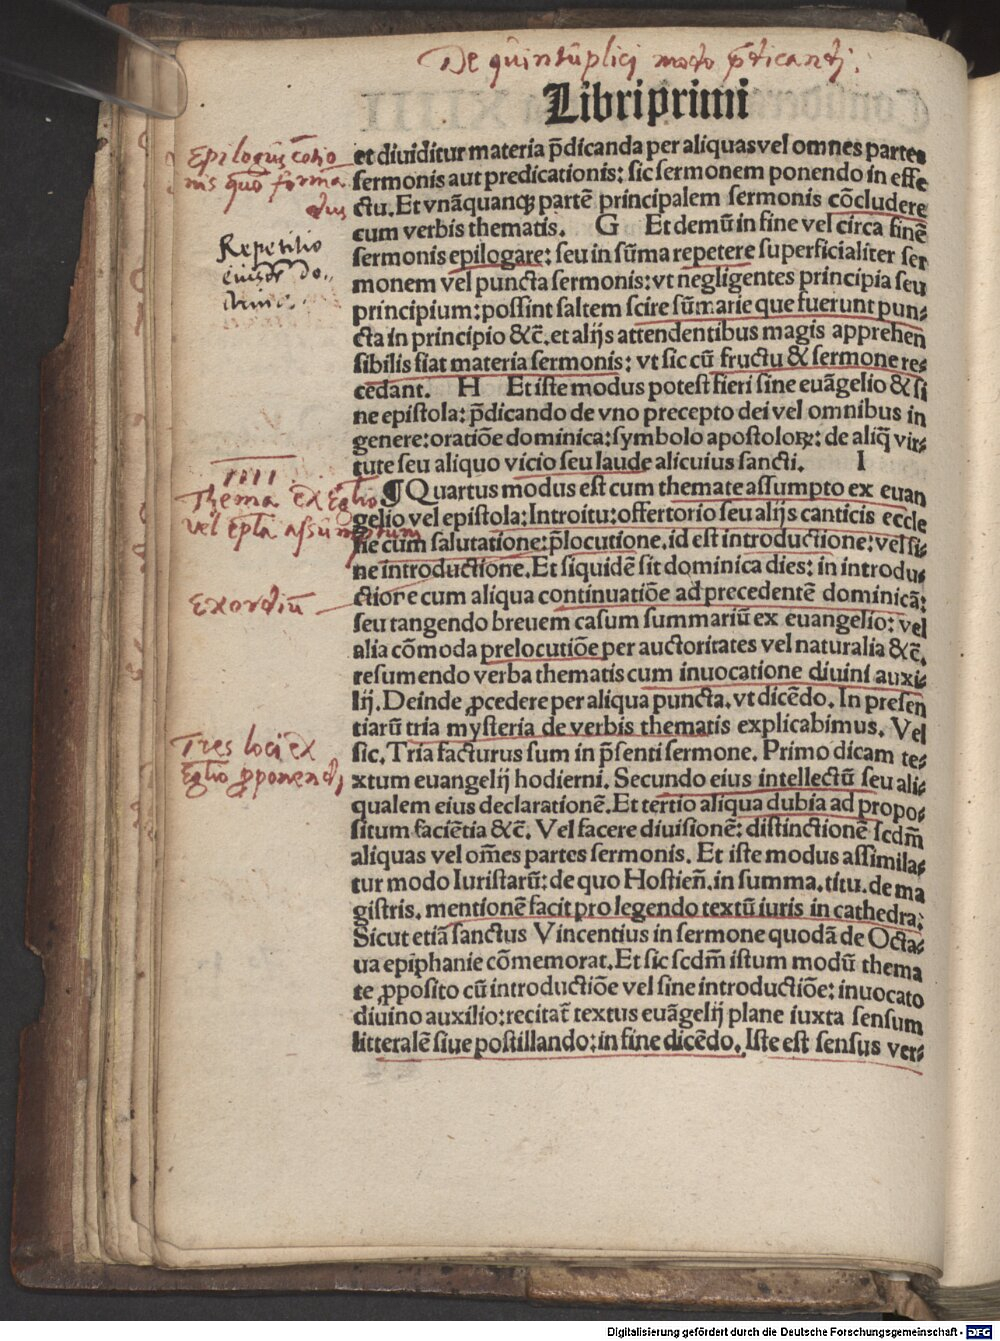 De quintuplici modo p̄dicandi.
Libri primi
Epilogus cōcio
nis quō forma
dus
Repetitio
eiusdē do-
ctrine.
et diuiditur materia p̄dicanda per aliquas vel omnes partes
sermonis aut predicationis: sic sermonem ponendo in effe
ctu. Et vnāquanqꝫ partē principalem sermonis cōcludere
cum verbis thematis. G Et demū in fine vel circa finē
sermonis epilogare: seu in sūma repetere superficialiter ser
monem vel puncta sermonis: vt negligentes principia seu
principium: possint saltem scire sūmarie que fuerunt pun⸗
cta in principio &c̄. et alijs attendentibus magis apprehen
sibilis fiat materia sermonis: vt sic cū fructu & sermone re⸗
cedant. H Et iste modus potest fieri sine euāgelio & si
ne epistola: p̄dicando de vno precepto dei vel omnibus in
genere: oratiōe dominica: symbolo apostoloꝝ: de aliq̄ vir⸗
tute seu aliquo vicio seu laude alicuius sancti. I
IIII
Thema ex Eglio
vel epl̄a assumptum
¶ Quartus modus est cum themate assumpto ex euan
gelio vel epistola: Introitu: offertorio seu alijs canticis eccle
sie cum salutatione: p̄locutione. id est introductione: vel si⸗
ne introductione. Et siquidē sit dominica dies: in introdu⸗
Exordiū
ctione cum aliqua continuatiōe ad precedentē dominicā:
seu tangendo breuem casum summariū ex euangelio: vel
alia cōmoda prelocutiōe per auctoritates vel naturalia &c̄.
resumendo verba thematis cum inuocatione diuini auxi⸗
lij. Deinde ꝓcedere per aliqua puncta. vt dicēdo. In presen
tiarū tria mysteria de verbis thematis explicabimus. Vel
Tres loci ex
Eglio ꝓponendi
sic. Tria facturus sum in p̄senti sermone. Primo dicam te⸗
xtum euangelij hodierni. Secundo eius intellectū seu ali⸗
qualem eius declarationē. Et tertio aliqua dubia ad propo⸗
situm faciētia &c̄. Vel facere diuisionē: distinctionē scdm̄
aliquas vel om̄es partes sermonis. Et iste modus assimila⸗
tur modo Iuristarū: de quo Hostien̄. in summa. titu. de ma
gistris. mentionē facit pro legendo textū iuris in cathedra:
Sicut etiā sanctus Vincentius in sermone quodā de Octa⸗
ua epiphanie cōmemorat. Et sic scdm̄ istum modū thema
te ꝓposito cū introductiōe vel sine introductiōe: inuocato
diuino auxilio: recitat̄ textus euāgelij plane iuxta sensum
litteralē siue postillando: in fine dicēdo. Iste est sensus ver⸗
Digitalisierung gefördert durch die Deutsche Forschungsgemeinschaft - DFG